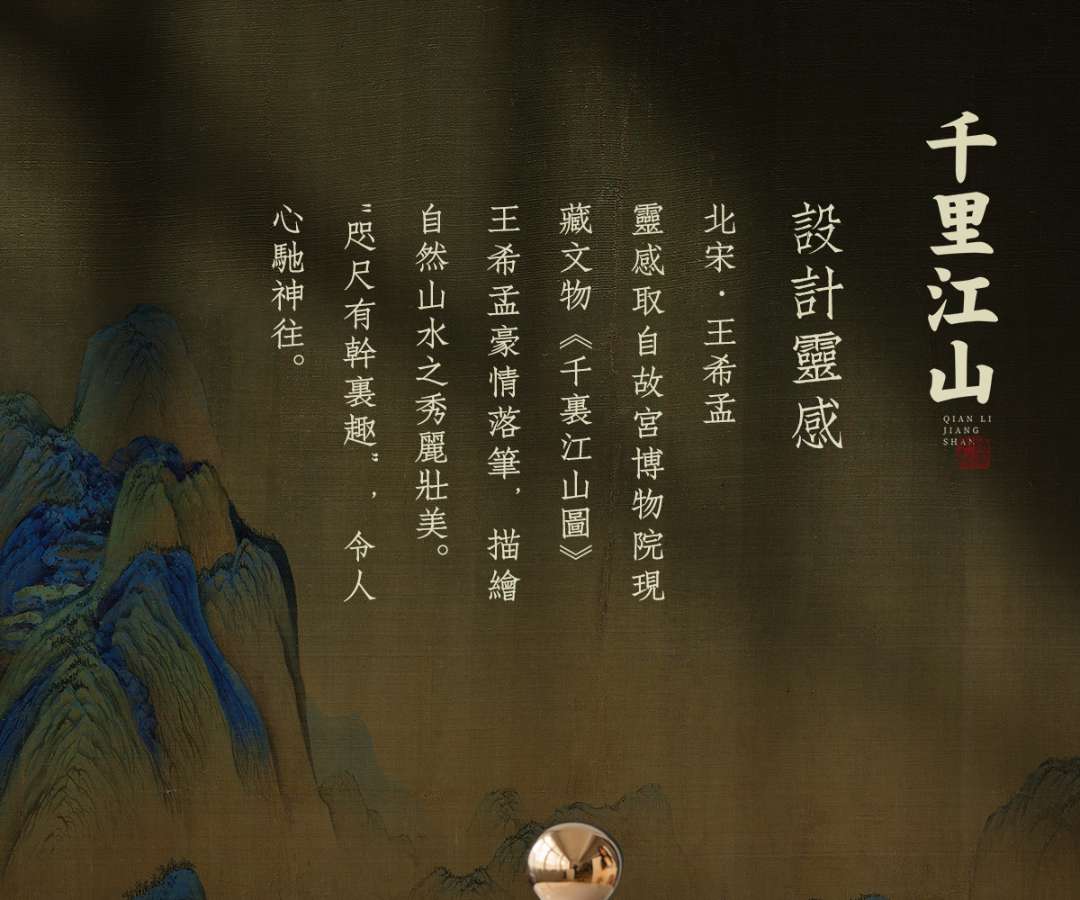 千里江山
QIAN LI
JIANG
SHAN
設計靈感
北宋·王希孟
靈感取自故宮博物院現
藏文物《千裏江山圖》
王希孟豪情落筆，描繪
自然山水之秀麗壯美。
"咫尺有幹裏趣"，令人
心馳神往。